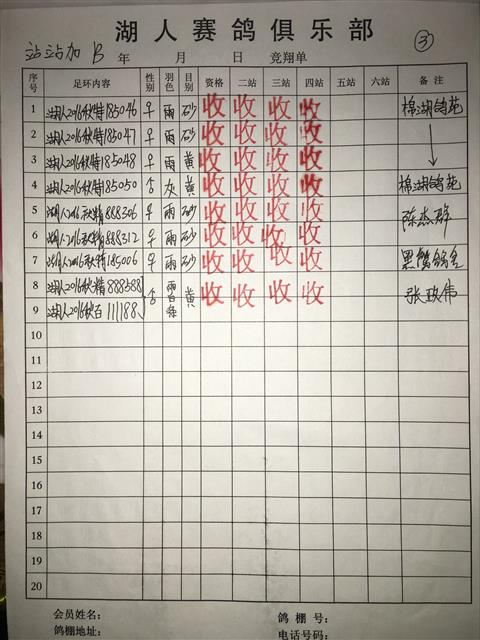 湖人赛鸽俱乐部
站站加 B 年 月 日 竞翔单 ③
序号 足环内容 性别 羽色 目别 资格 二站 三站 四站 五站 六站 备注
1 湖人2016秋特185046 ♀ 雨 砂 收 收 收 收 棉湖鸽苑
2 湖人2016秋特185047 ♀ 雨 砂 收 收 收 收
3 湖人2016秋特185048 ♀ 雨 黄 收 收 收 收
4 湖人2016秋特185050 灰 黄 收 收 收 收 棉湖鸽苑
5 湖人2016秋精888306 ♀ 雨 砂 收 收 收 收 陈杰群
6 湖人2016秋精888312 ♀ 雨 砂 收 收 收 收
7 湖人2016秋特185006 ♀ 雨 砂 收 收 收 收
8 湖人2016秋精888588 雨白条 黄 收 收 收 收 张政伟
9 湖人2016秋百111188
10
11
12
13
14
15
16
17
18
19
20
会员姓名: 鸽棚号:
鸽棚地址: 电话号码: